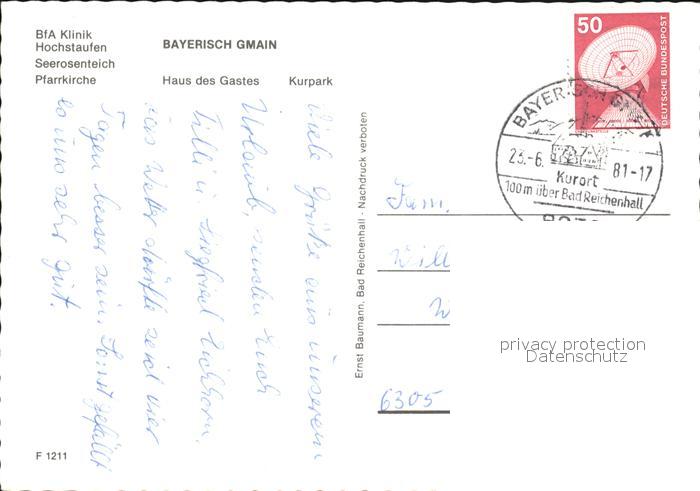 BfA Klinik
Hochstaufen
Seerosenteich
Pfarrkirche
BAYERISCH GMAIN
Haus des Gastes Kurpark
Viele Grüße aus unserem
Urlaub, senden Euch
Tilli u. Siegfried
das Wetter dürfte seid vier
Tagen besser sein. Sonst gefällt
es uns sehr gut.
F 1211
Ernst Baumann, Bad Reichenhall - Nachdruck verboten
50
DEUTSCHE BUNDESPOST
BAYERISCH GMAIN
23.-6. 81-17
Kurort
100 m über Bad Reichenhall
Fam.
Will
W
6305
privacy protection
Datenschutz